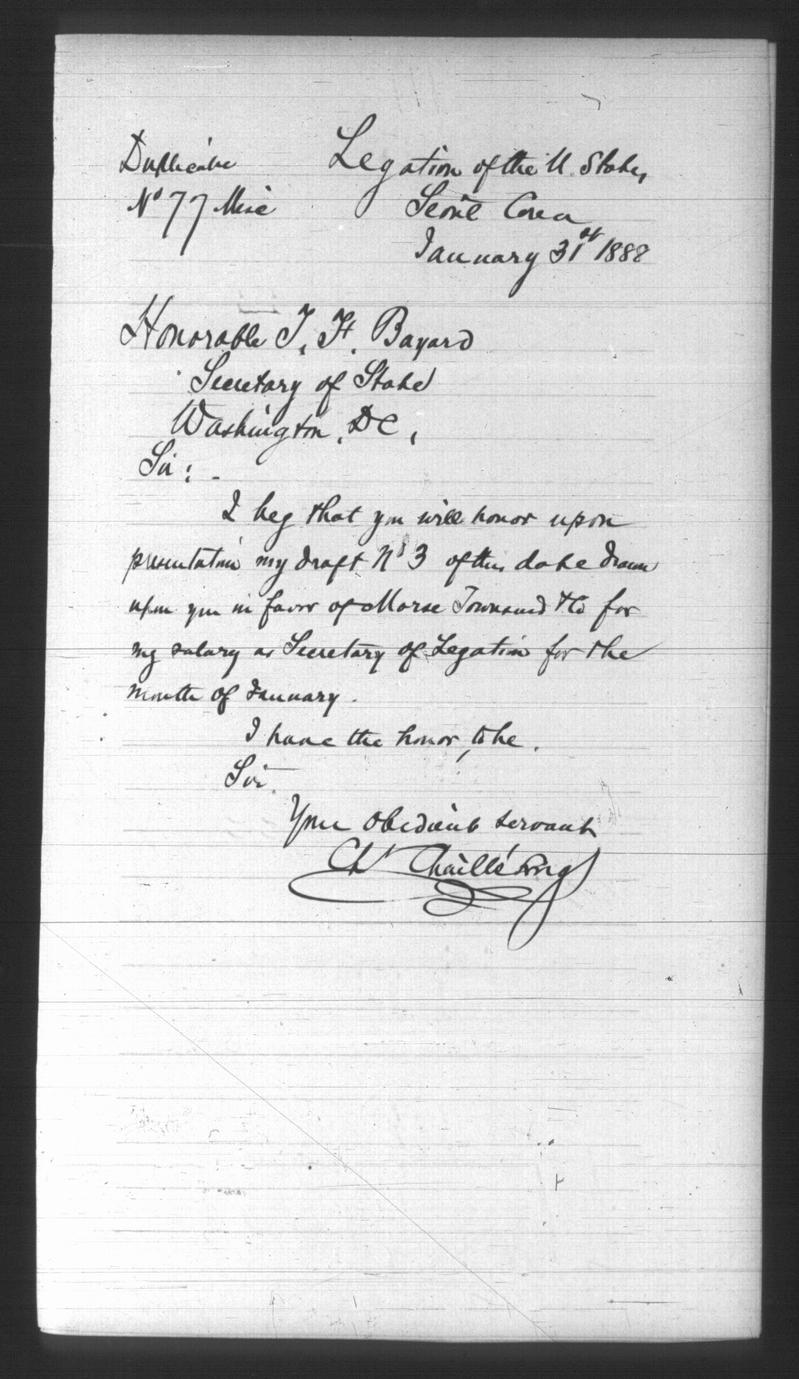 Duplicate
Legation of the U. States,
No 77 Misc
Seoul Corea
January 31st 1888
Honorable T. F. Bayard
Secretary of State
Washington, DC,
Sir: -
I beg that you will honor upon
presentation my draft No 3 of this date drawn
upon you in favor of Morse Townsend & Co for
my salary as Secretary of Legation for the
month of January.
I have the honor, to be.
Sir.
Your obedient servant
Chs Chaillé Long